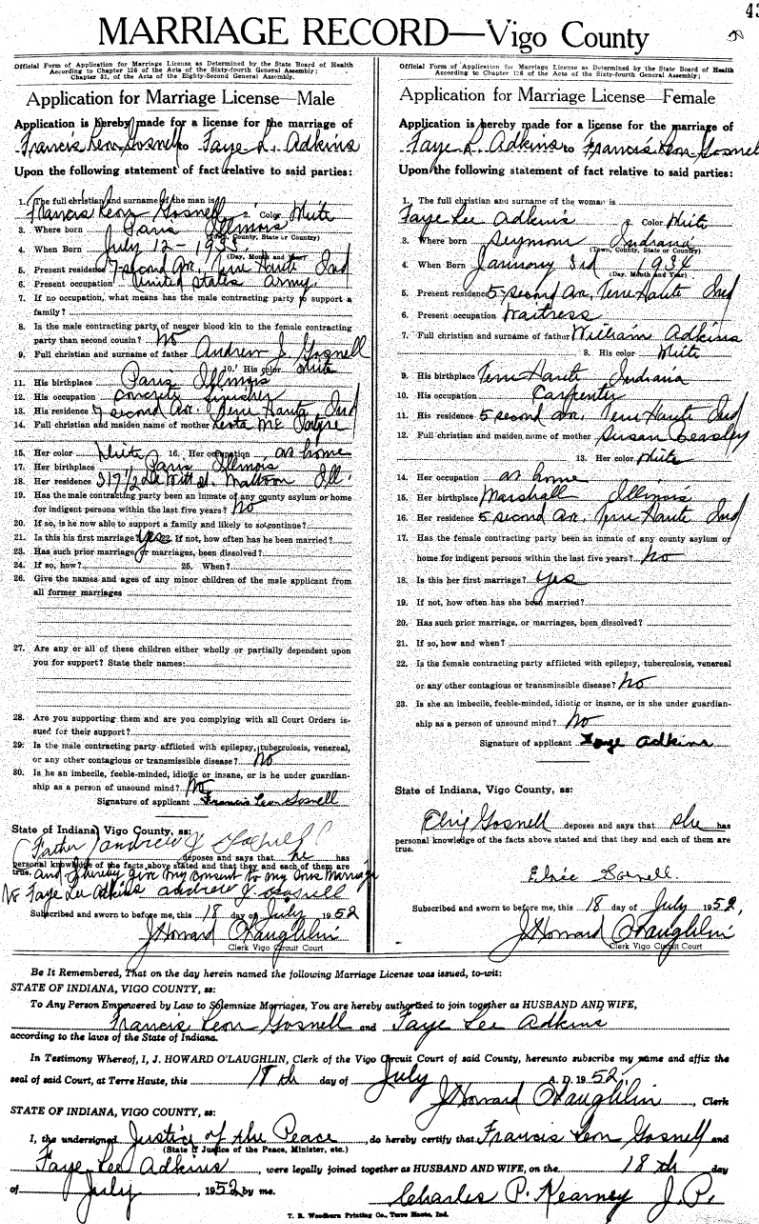 43
MARRIAGE RECORD—Vigo County
Official Form of Application for Marriage License as Determined by the State Board of Health
According to Chapter 126 of the Acts of the Sixty-fourth General Assembly;
Chapter 31, of the Acts of the Eighty-Second General Assembly.
Application for Marriage License—Male
Application is hereby made for a license for the marriage of
Francis Leon Gosnell to Faye L. Adkins
Upon the following statement of fact relative to said parties:
1. The full christian and surname of the man is
Francis Leon Gosnell 2. Color White
3. Where born Paris Illinois
(Town, County, State or Country)
4. When Born July 12 - 193
(Day, Month and Year)
5. Present residence 7 second Av. Terre Haute Ind
6. Present occupation United States Army.
7. If no occupation, what means has the male contracting party to support a
family?
8. Is the male contracting party of nearer blood kin to the female contracting
party than second cousin? No
9. Full christian and surname of father Andrew J. Gosnell
10. His color White
11. His birthplace Paris Illinois
12. His occupation Concrete finisher
13. His residence 7 second Av. Terre Haute Ind
14. Full christian and maiden name of mother Mc
15. Her color White 16. Her occupation at home
17. Her birthplace Paris Illinois
18. Her residence 317 1/2 De Witt st. Mattoon Ill.
19. Has the male contracting party been an inmate of any county asylum or home
for indigent persons within the last five years? No
20. If so, is he now able to support a family and likely to so continue?
21. Is this his first marriage? Yes 22. If not, how often has he been married?
23. Has such prior marriage or marriages, been dissolved?
24. If so, how? 25. When?
26. Give the names and ages of any minor children of the male applicant from
all former marriages
27. Are any or all of these children either wholly or partially dependent upon
you for support? State their names:
28. Are you supporting them and are you complying with all Court Orders is-
sued for their support?
29. Is the male contracting party afflicted with epilepsy, tuberculosis, venereal,
or any other contagious or transmissible disease? No
30. Is he an imbecile, feeble-minded, idiotic or insane, or is he under guardian-
ship as a person of unsound mind? No
Signature of applicant Francis Leon Gosnell
State of Indiana, Vigo County, ss:
(Father) Andrew J Gosnell
deposes and says that he has
personal knowledge of the facts above stated and that they and each of them are
true. and I hereby give my consent to my sons Marriage
to Faye Lee Adkins Andrew J. Gosnell
Subscribed and sworn to before me, this 18 day of July 1952
J Howard O'Laughlin
Clerk Vigo Circuit Court
Official Form of Application for Marriage License as Determined by the State Board of Health
According to Chapter 126 of the Acts of the Sixty-fourth General Assembly.
Application for Marriage License—Female
Application is hereby made for a license for the marriage of
Faye L. Adkins to Francis Leon Gosnell
Upon the following statement of fact relative to said parties:
1. The full christian and surname of the woman is
Faye Lee Adkins 2. Color White
3. Where born Seymour Indiana
(Town, County, State or Country)
When Born January 3rd 1934
(Day, Month and Year)
5. Present residence 5 second Av. Terre Haute Ind
6. Present occupation Waitress
7. Full christian and surname of father William Adkins
8. His color White
9. His birthplace Terre Haute Indiana
10. His occupation Carpenter
11. His residence 5 second Av. Terre Haute Ind
12. Full christian and maiden name of mother Susan Beasley
13. Her color White
14. Her occupation at home
15. Her birthplace Marshall Illinois
16. Her residence 5 second Av. Terre Haute Ind
17. Has the female contracting party been an inmate of any county asylum or
home for indigent persons within the last five years? No
18. Is this her first marriage? Yes
19. If not, how often has she been married?
20. Has such prior marriage, or marriages, been dissolved?
21. If so, how and when?
22. Is the female contracting party afflicted with epilepsy, tuberculosis, venereal
or any other contagious or transmissible disease? No
23. Is she an imbecile, feeble-minded, idiotic or insane, or is she under guardian-
ship as a person of unsound mind? No
Signature of applicant Faye Adkins
State of Indiana, Vigo County, ss:
Gosnell deposes and says that she has
personal knowledge of the facts above stated and that they and each of them are
true.
Subscribed and sworn to before me, this 18 day of July 1952,
J Howard O'Laughlin
Clerk Vigo Circuit Court
Be It Remembered, That on the day herein named the following Marriage License was issued, to-wit:
STATE OF INDIANA, VIGO COUNTY, ss:
To Any Person Empowered by Law to Solemnize Marriages, You are hereby authorized to join together as HUSBAND AND WIFE,
Francis Leon Gosnell and Faye Lee Adkins
according to the laws of the State of Indiana.
In Testimony Whereof, I, J. HOWARD O'LAUGHLIN, Clerk of the Vigo Circuit Court of said County, hereunto subscribe my name and affix the
seal of said Court, at Terre Haute, this 18th day of July A. D. 1952
J Howard O'Laughlin, Clerk
STATE OF INDIANA, VIGO COUNTY, ss:
I, the undersigned Justice of the Peace, do hereby certify that Francis Leon Gosnell and
(State if Justice of the Peace, Minister, etc.)
Faye Lee Adkins, were legally joined together as HUSBAND AND WIFE, on the 18th day
of July 1952 by me. Charles P. Kearney J.P.
T. R. Woodburn Printing Co., Terre Haute, Ind.